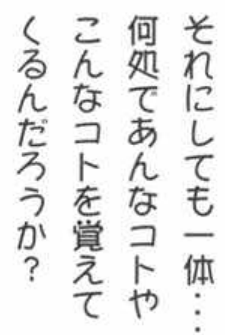 それにしても一体…
何処であんなコトや
こんなコトを覚えて
くるんだろうか？